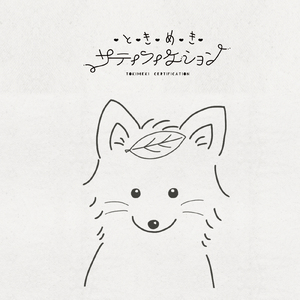 ときめき
サティフィケーション
TOKIMEKI CERTIFICATION